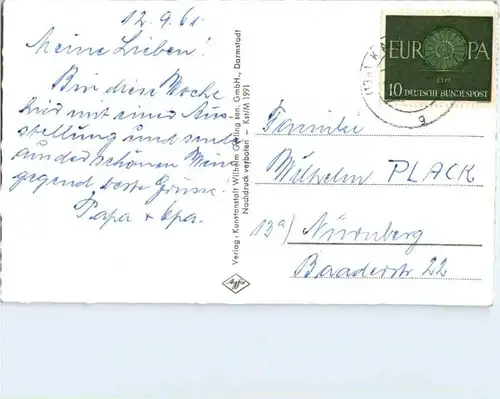 12.9.61.
Meine Lieben!
Bin diese Woche
hier mit einer Aus-
stellung und sende
aus der schönen Wein
gegend beste Grüsse.
Papa & Opa.
Verlag: Kunstanstalt Wilhelm Gerling sen. GmbH., Darmstadt
Nachdruck verboten – Kst/M 1991
EUROPA
CEPT
10 DEUTSCHE BUNDESPOST
Familie
Wilhelm PLACK
13a) Nürnberg
Baaderstr 22